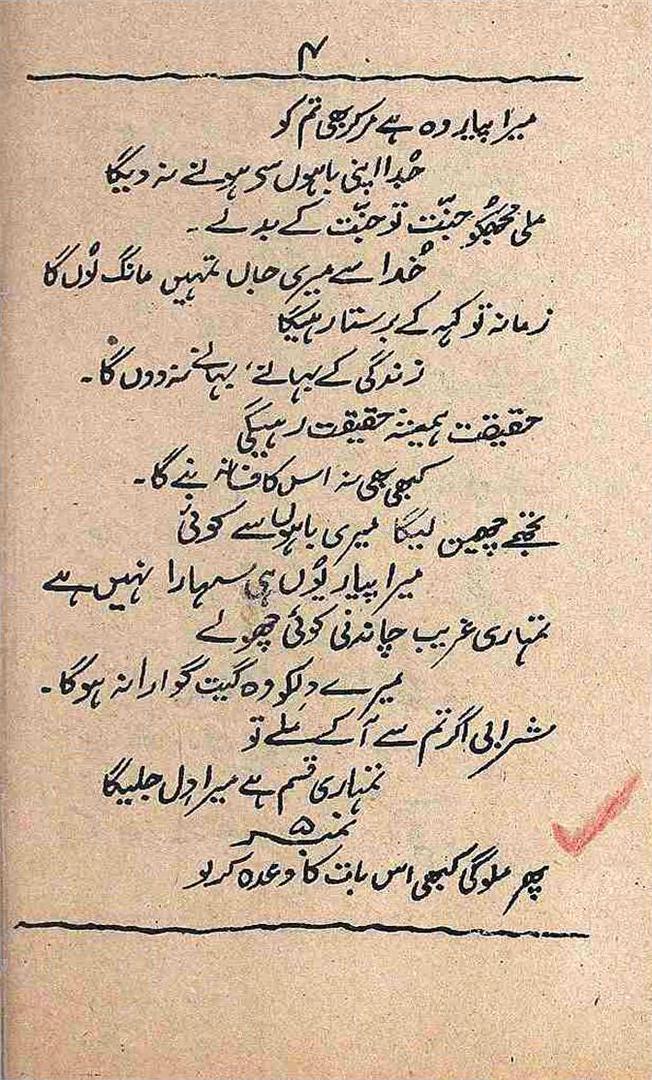 ۴
میرا پیار وہ ہے مر کر بھی تم کو
خُدا اپنی باہوں سی ہونے نہ دیگا
ملی مجھکو جنّت تو جنّت کے بدلے ۔
خُدا سے میری جاں تمہیں مانگ لُوں گا
زمانہ تو کہہ کے پرستار ہیگا
زندگی کے بہانے، بہانے نہ دوں گا۔
حقیقت ہمیشہ حقیقت رہیگی
کبھی بھی نہ اس کا فسانہ بنے گا۔
تجھے چھین لیگا میری باہوں سے کوئی
میرا پیار یُوں ہی سہارا نہیں ہے
تمہاری غریب چاندنی کوئی چھولے
میرے دِلکو وہ گیت گوارا نہ ہوگا۔
شرابی اگر تم سے آ کے ملے تو
تمہاری قسم ہے میرا دِل جلیگا
نمبر ۵
پھر ملوگی کبھی اس بات کا وعدہ کر لو